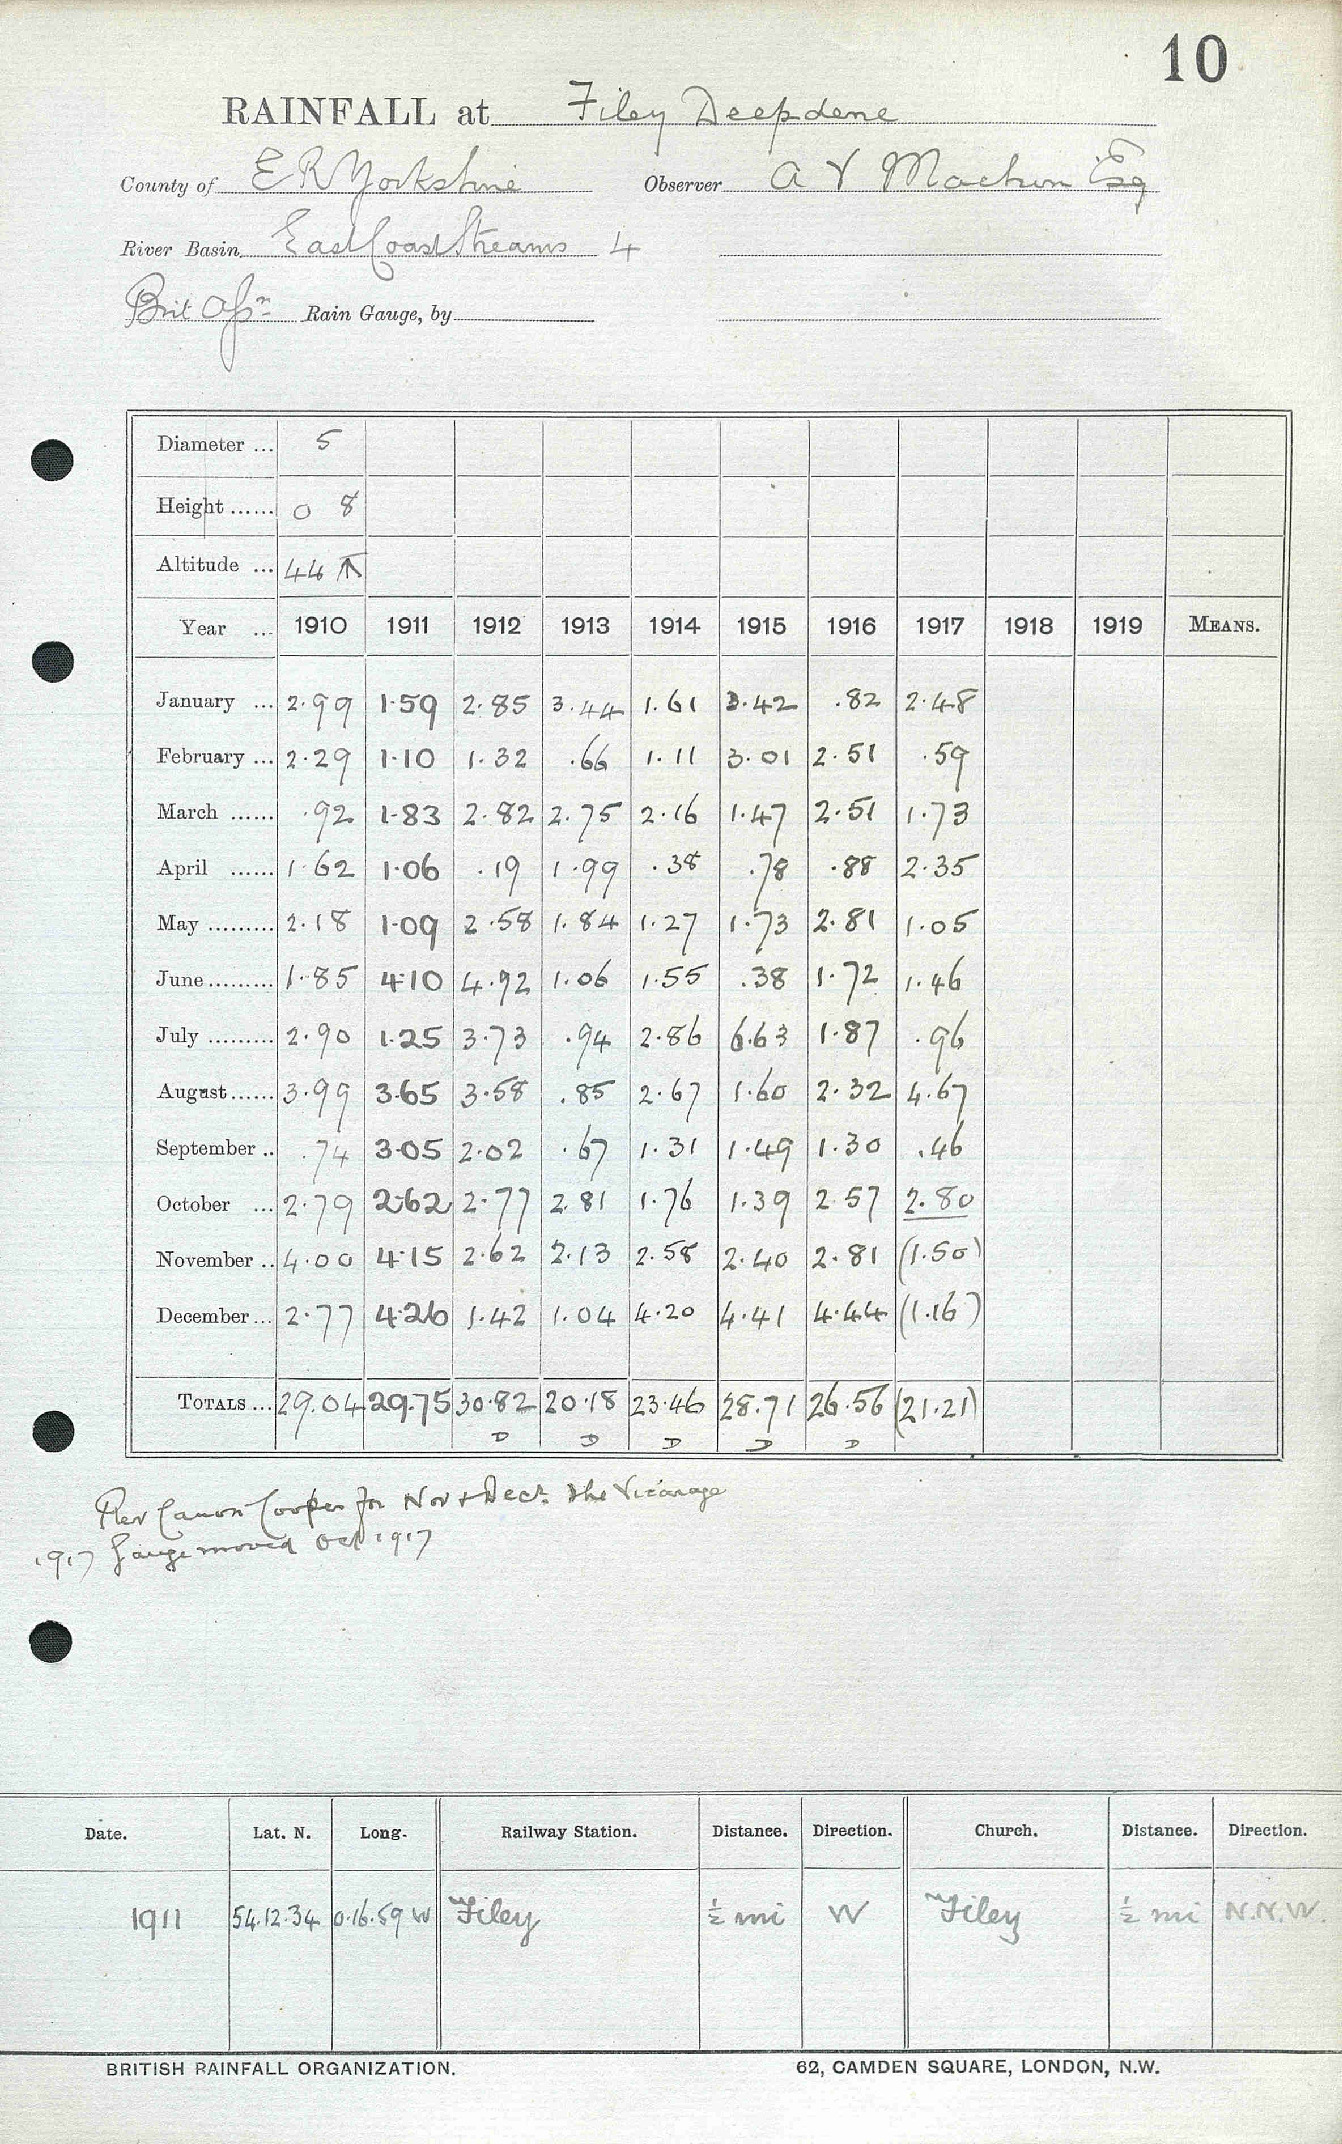 10
RAINFALL at Filey Deepdene
County of E R Yorkshire Observer A V Machin Esq
River Basin East Coast Streams 4
Brit Assn Rain Gauge, by
Diameter ... 5
Height ...... 0 8
Altitude ... 44
Year ... 1910 1911 1912 1913 1914 1915 1916 1917 1918 1919 MEANS.
January ... 2.99 1.59 2.85 3.44 1.61 3.42 .82 2.48
February ... 2.29 1.10 1.32 .66 1.11 3.01 2.51 .59
March ...... .92 1.83 2.82 2.75 2.16 1.47 2.51 1.73
April ...... 1.62 1.06 .19 1.99 .38 .78 .88 2.35
May ......... 2.18 1.09 2.58 1.84 1.27 1.73 2.81 1.05
June ......... 1.85 4.10 4.92 1.06 1.55 .38 1.72 1.46
July ......... 2.90 1.25 3.73 .94 2.86 6.63 1.87 .96
August ...... 3.99 3.65 3.58 .85 2.67 1.60 2.32 4.67
September .. .74 3.05 2.02 .67 1.31 1.49 1.30 .46
October ... 2.79 2.62 2.77 2.81 1.76 1.39 2.57 2.80
November .. 4.00 4.15 2.62 2.13 2.58 2.40 2.81 (1.50)
December ... 2.77 4.26 1.42 1.04 4.20 4.41 4.44 (1.16)
TOTALS ... 29.04 29.75 30.82 20.18 23.46 28.71 26.56 (21.21)
D D D D D
Rev Canon Cooper for Nov + Decr. The Vicarage
1917 Gauge moved Oct 1917
Date. Lat. N. Long. Railway Station. Distance. Direction. Church. Distance. Direction.
1911 54.12.34 0.16.59 W Filey ½ mi W Filey ½ mi N.N.W.
BRITISH RAINFALL ORGANIZATION. 62, CAMDEN SQUARE, LONDON, N.W.